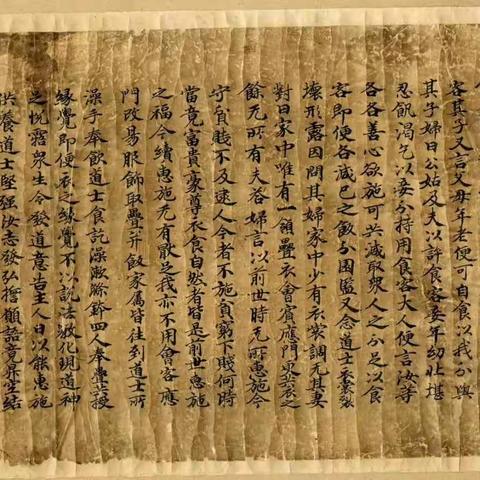 客其子又言父母年老便可自食以我分與
其子婦曰公姑及夫以許食客妾年幼壯堪
忍飢渴乞以妾分持用食客大人便言汝等
各各善心欲施可共減取眾人之分足以食
客即便各減已之飯分又念道士衣裳弊
壞形露因問其婦家中少有衣裳調无其妻
對曰家中唯有一領疊衣會賓應門衣之
餘无所有夫答婦言以前世時无所惠施今
守貧賤不及逮人今者不施貧窮下賤何時
當竟富貴豪尊衣食自然者皆是前世惠施
之福今續惠施无有厭足我亦不用會客應
門改易服飾取疊并飯家屬皆往到道士所
澡手奉飲道士食訖澡漱除幹四人奉疊授
緣覺即便衣之緣覺不以說法教化現道神
之眾生令發道意告主人曰以能惠施
供養道士堅强汝志發弘誓願語竟昇空結